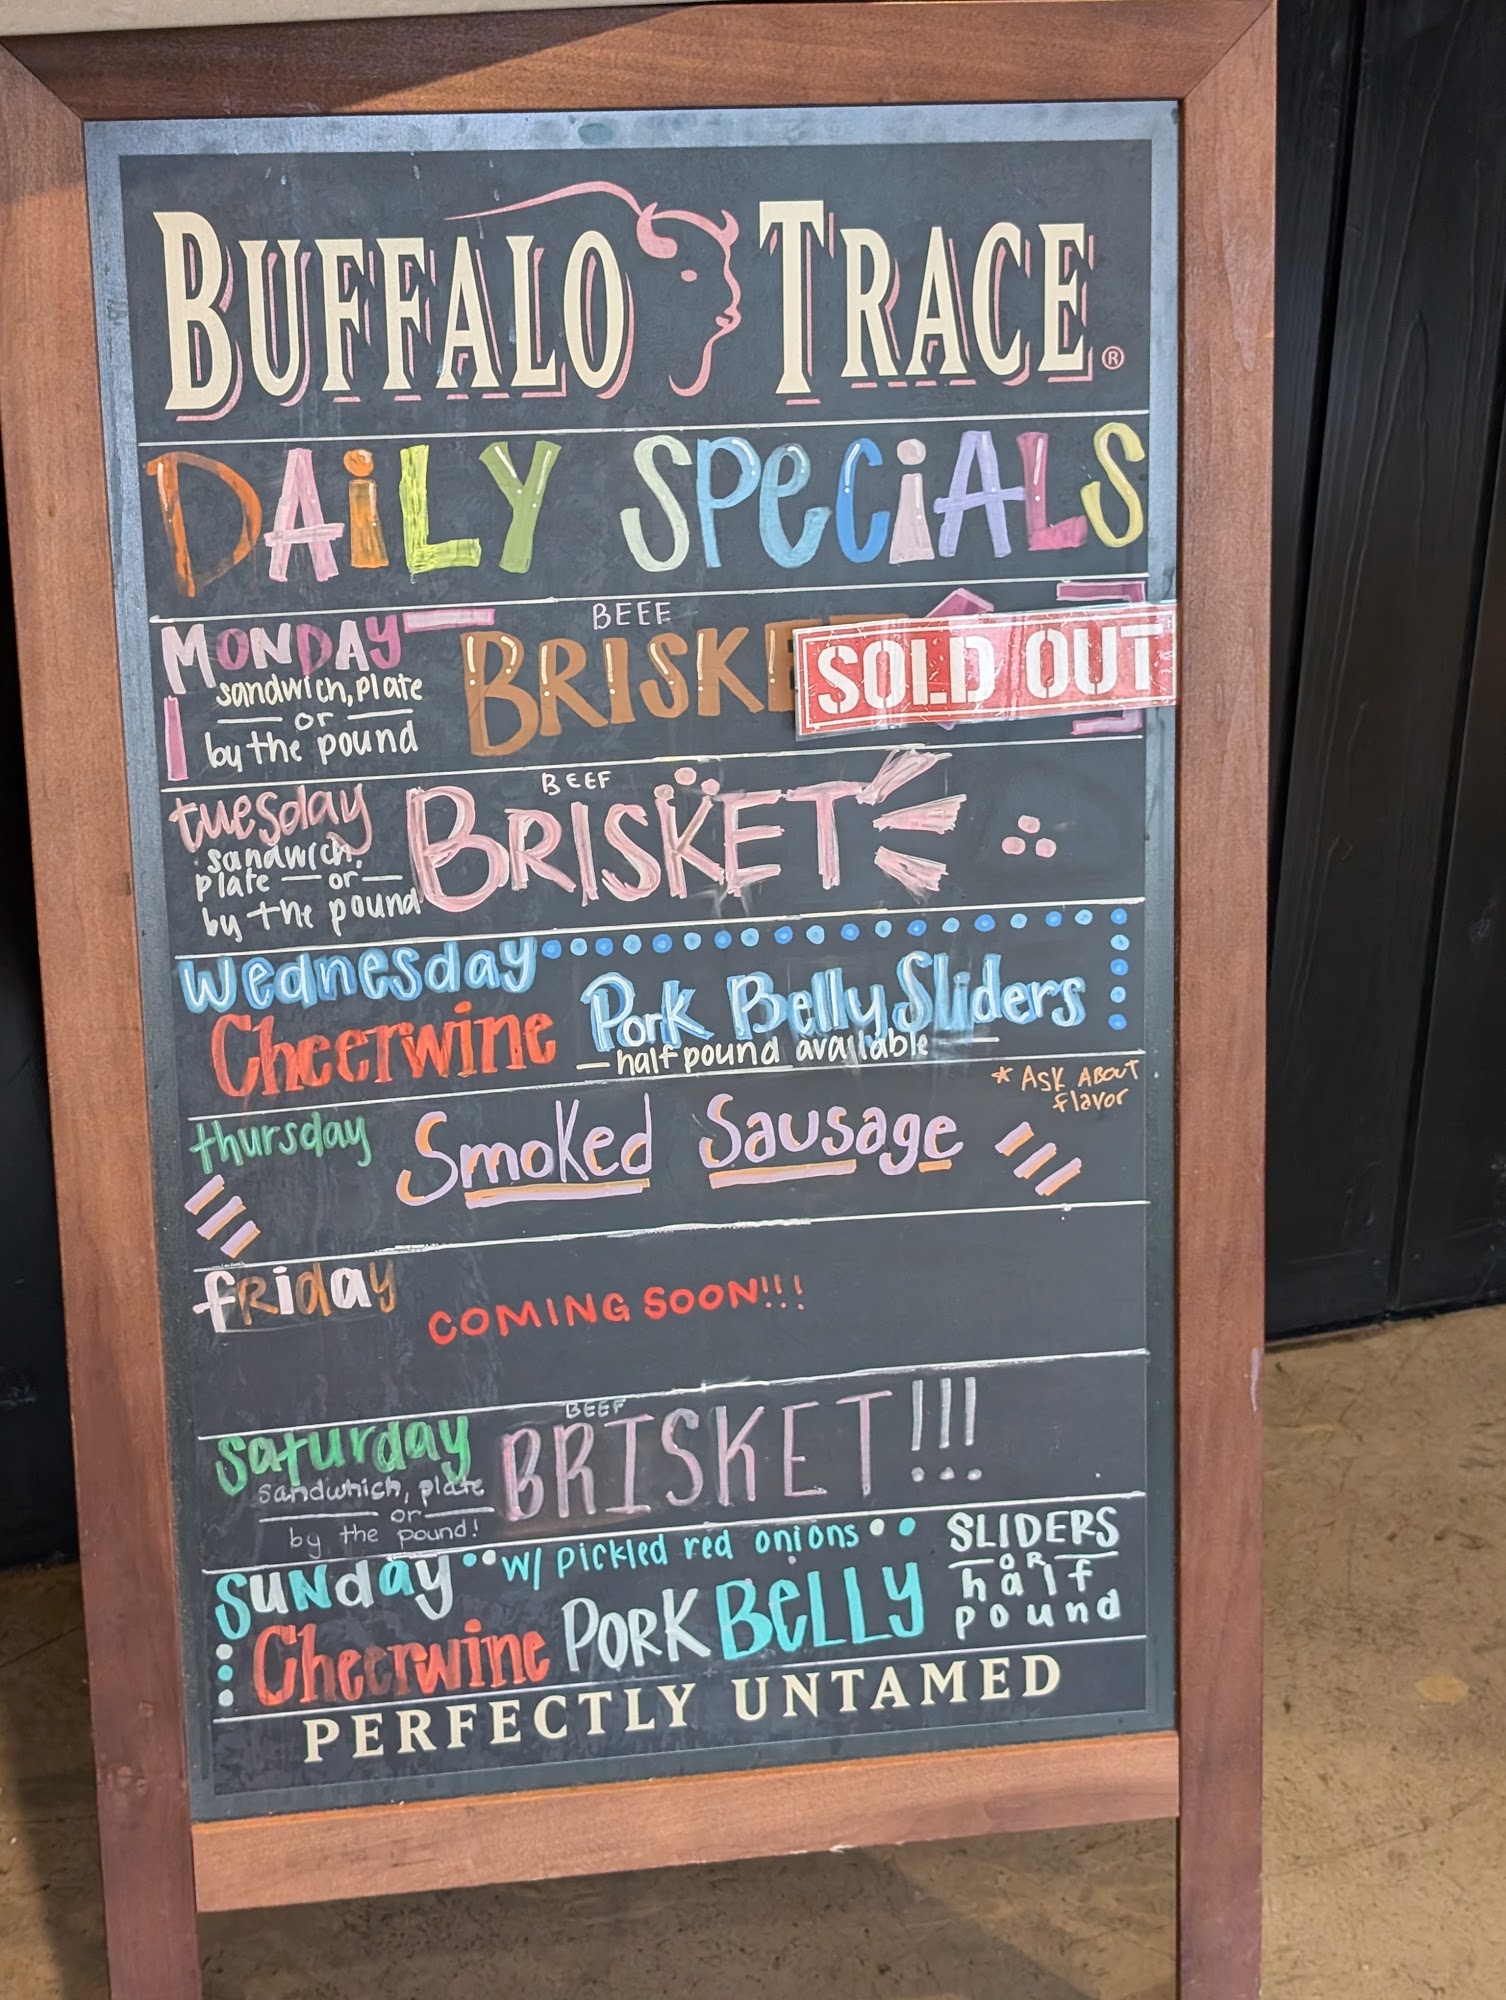 BUFFALO TRACE®
DAILY SPECIALS
MONDAY
BEEF
BRISKE
SOLD OUT
sandwich, plate
or
by the pound
tuesday
BEEF
BRISKET
sandwich,
plate — or —
by the pound
Wednesday
Cheerwine Pork Belly Sliders
— half pound available —
* ASK ABOUT
flavor
thursday Smoked Sausage
fRiday COMING SOON!!!
Saturday
BEEF
BRISKET!!!
sandwhich, plate
or
by the pound!
SUNday w/ pickled red onions
Cheerwine PORK BELLY
SLIDERS
OR
half
pound
PERFECTLY UNTAMED